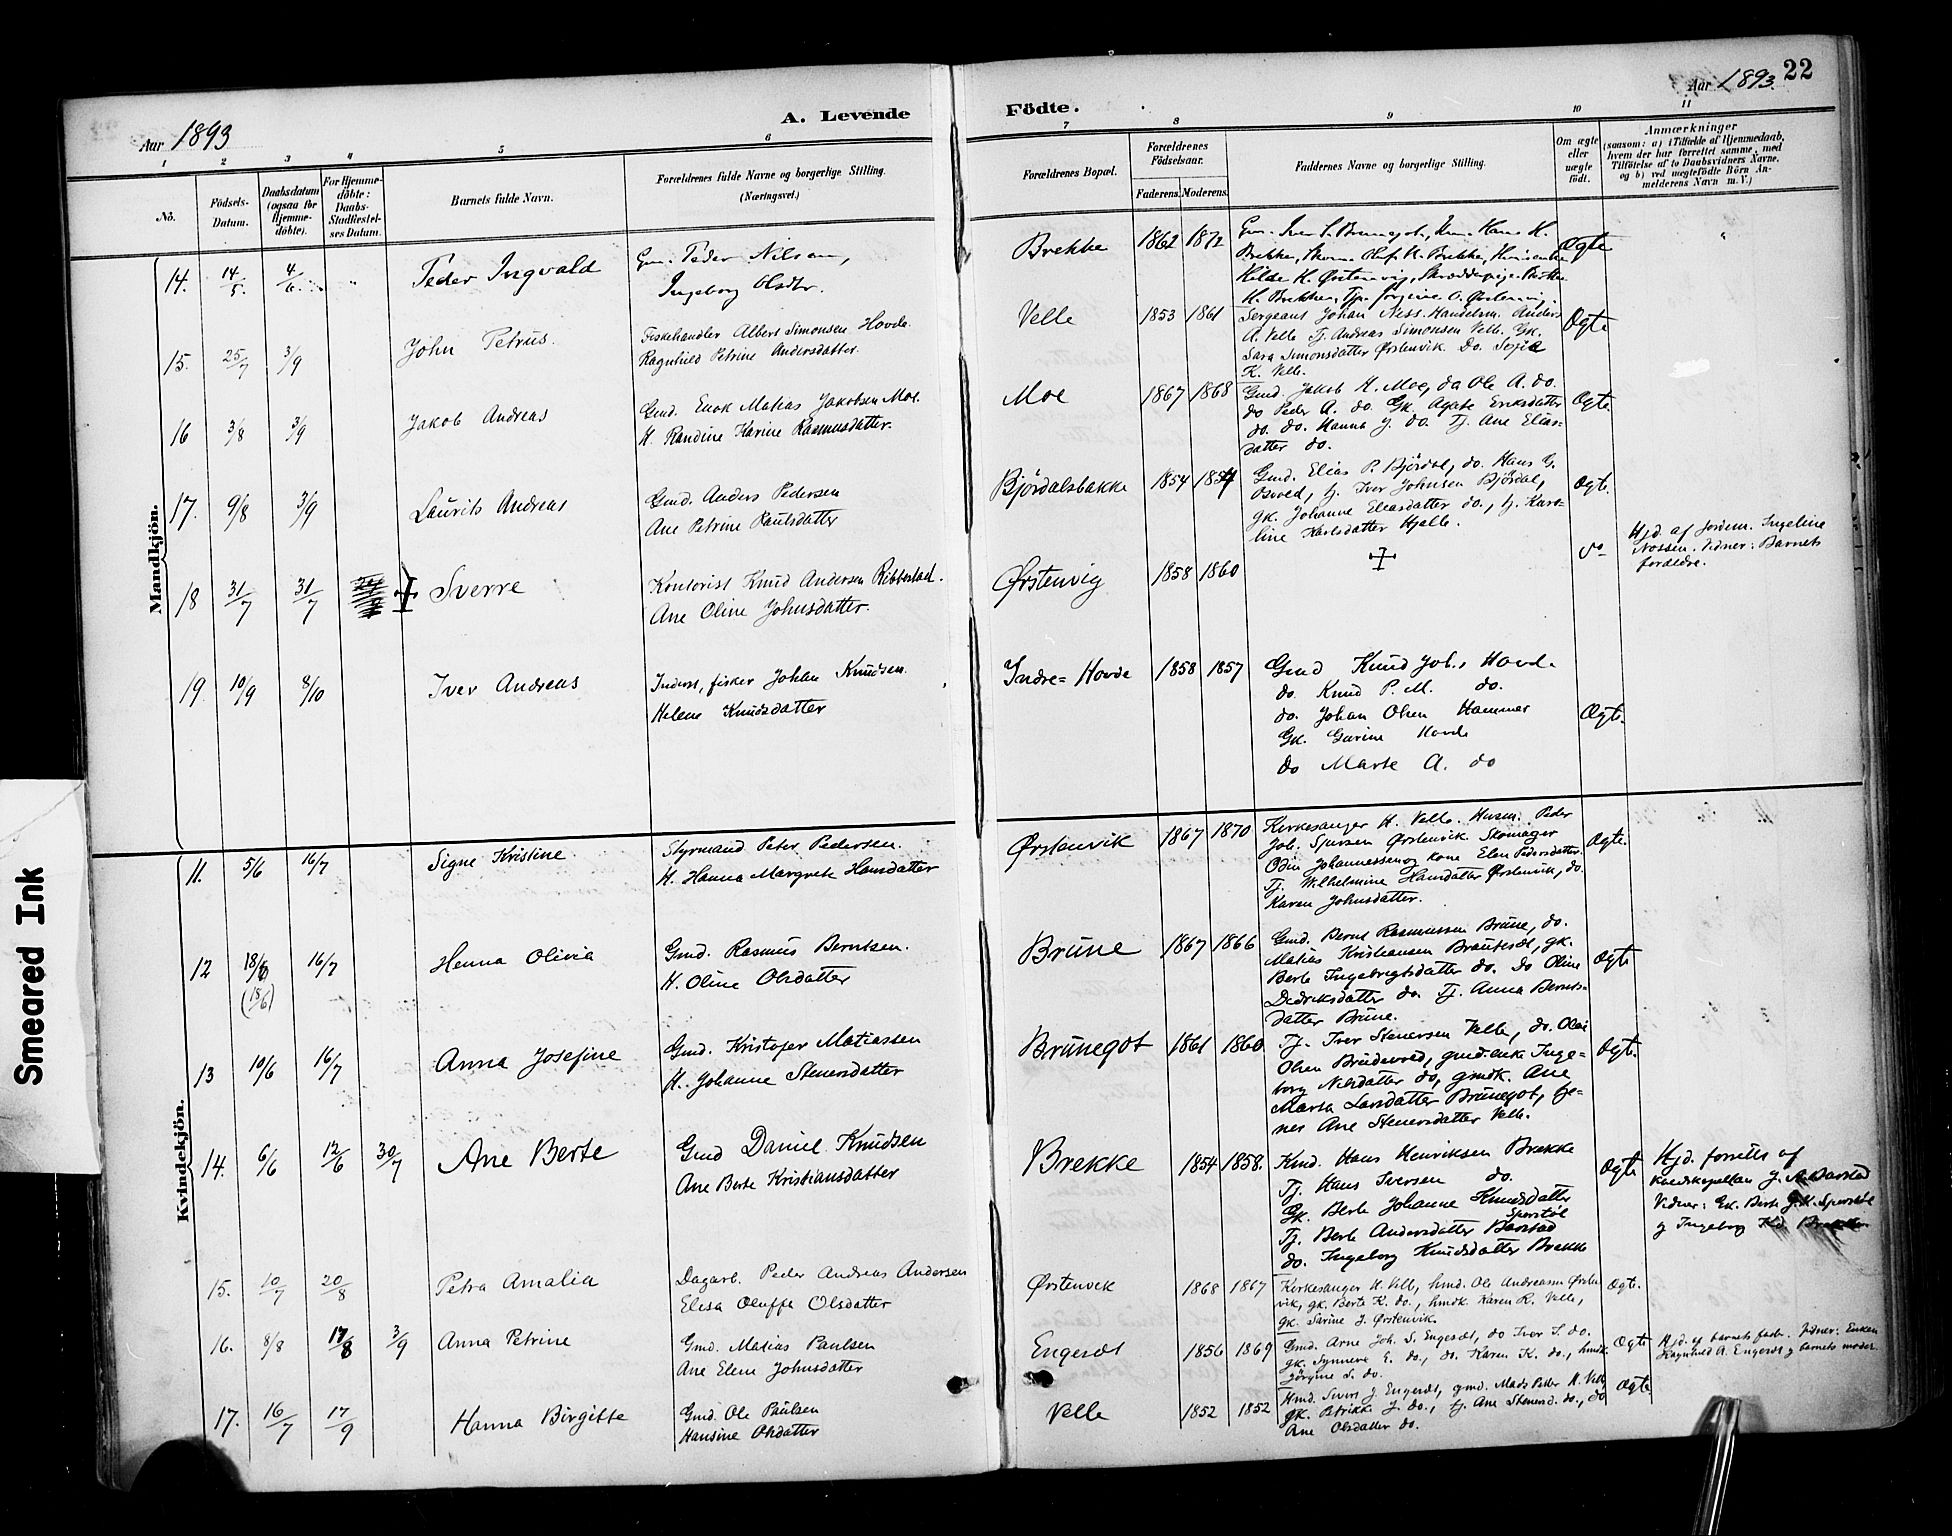 22
Aar 1893
A. Levende
Födte.
Aar 1893.
1 2 3 4 5 6 7 8 9 10 11
No.
Födsels-
Datum.
Daabsdatum
(ogsaa for
Hjemme-
döbte).
For Hjemme-
döbte:
Daabs-
Stadfæstel-
ses Datum.
Barnets fulde Navn.
Forældrenes fulde Navne og borgerlige Stilling.
(Næringsvei.)
Forældrenes Bopæl.
Forældrenes
Födselsaar.
Faderens.
Moderens.
Faddernes Navne og borgerlige Stilling.
Om ægte
eller
uægte
født.
Anmærkninger
(saasom: a) i Tilfælde af Hjemmedaab,
hvem der har forrettet samme, med
Tilföielse af to Daabsvidners Navne,
og b) ved uægtefödte Börn An-
melderens Navn m. V.)
Mandkjön.
14. 14/5. 4/6. " Peder Ingvald
Gm. Peder Nilsen,
Ingeborg Olsdtr.
Brekke 1862 1872
Gm. Iver
Brekke, Olef H. Brekke,
Hilde H. Ørstenvig,
H. Brekke, Tjp. O. Ørstenvig.
Ægte
15. 25/7 3/9 John Petrus.
Fiskehandler Albert Simonsen Hovde.
Ragnhild Petrine Andersdatter.
Velle 1853 1861
Sergeant Johan Ness. Handelsm. Anders
A. Velle Tj. Andreas Simonsen Velle. Gk.
Sara Simonsdatter Ørstenvik. Do. Sofie
K. Velle.
Ægte
16 3/8 3/9 Jakob Andreas
Gmd. Enok Matias Jakobsen Moe.
H. Randine Karine Rasmusdatter.
Moe 1867 1868
Gmd. Jakob H. Moe, da Ole A. do.
do Peder A. do. Gk. Agate Eriksdatter
do. do. Hanna J. do. Tj. Ane Elias-
datter do.
Ægte
17. 9/8 3/9 Laurits Andreas
Gmd. Anders Pedersen
Ane Petrine Paulsdatter
Bjørdalsbakke 1854 1854
Gmd. Elias P. Bjørdal, do. Hans G.
Osvold, tj. Iver Johnsen Bjørdal,
gk. Johanne Eliasdatter do., tj. Karo-
line Karlsdatter Hjelle.
Ægte.
18 31/7 31/7 Sverre
Kontorist Knud Andersen Ribbestad.
Ane Oline Johnsdatter.
Ørstenvig 1858 1860
do
Hjd. af Jordem. Ingeline
Nossen. Vidner: Barnets
forældre.
19. 10/9 8/10 Iver Andreas
Inderst, fisker Johan Knudsen.
Helene Knudsdatter
Indre= Hovde 1858 1857
Gmd Knud Joh., Hovd.
do. Knud P. M. do.
do. Johan Olsen Hammer
Gk. Gurine Hovde
do Marte A. do
Ægte.
Kvindekjön.
11. 5/6 16/7 Signe Kristine.
Styrmand Peter Pedersen.
H. Hanna Margrete Hansdatter
Ørstenvik 1867 1870
Kirkesanger H. Velle. Husm. Peder
Joh. Iversen Ørstenvik. Skomager
Odin Johannessen og kone Elen Pedersdatter.
Tj. Wilhelmine Hansdatter Ørstenvik, do.
Karen Johnsdatter.
Ægte.
12 18/6 (15/6) 16/7 Henna Olivia
Gmd. Rasmus Berntsen.
H. Oline Olsdatter
Brune 1867 1866
Gmd. Bernt Rasmussen Brune, do.
Matias Kristiansen Brautesdt, gk.
Berte Ingebrigtsdatter do. do Oline
Dedriksdatter do. Tj. Anna Bernts-
datter Brune.
Ægte
13 10/6 16/7 Anna Josefine
Gmd. Kristofer Matiassen
H. Johanne Stenersdatter
Brunegot 1861 1860
Tj. Iver Stenersen Velle, do. Olai
Olsen Brudevold, gmd.enke Inge-
borg Nilsdatter do, gmdk. Ane
Marta Larsdatter Brunegot, tje-
ner Ane Stenersdatter Velle.
Ægte.
14. 6/6 12/6 30/7 Ane Berte
Gmd Daniel Knudsen
Ane Berte Kristiansdatter
Brekke 1854 1858.
Kmd. Hans Henriksen Brekke
Tj. Hans Iversen do.
Gk. Berte Johanne Knudsdatter
Sperstøl
Tj. Berte Andersdatter Barstad
do. Ingeborg Knudsdatter Brekke
Ægte
Hjd. forretts af
kredskapellan J. A. Barstad
Vidner: Gk. Berte J. K. Sperstøl
og Ingeborg Kd. Brekke
15. 10/7 20/8 Petra Amalia
Dagarb. Peder Andreas Andersen
Elisa Oluffa Olsdatter
Ørstenvik 1868 1867
Kirkesanger H. Velle, hmd. Ole Andreasen Ørsten-
vik, gk. Berte K. do., hmdk. Karen R. Velle,
gk. Sarine J. Ørstenvik.
Ægte.
16. 8/8 17/8 3/9 Anna Petrine
Gmd. Matias Paulsen
Ane Elene Johnsdatter
Engesdt 1856 1869
Gmd. Arne Joh. S. Engesdt, do Iver S. do.
gk. Synneve E. do., do. Karen K. do., hmdk
Jørgine S. do.
Ægte
Hjd. af barnets fader. Vidner: Enken
Ragnhild A. Engesdt og barnets moder.
17. 16/7 17/9 Hanna Birgitte
Gmd. Ole Paulsen
Hansine Olsdatter
Velle 1852 1852
Hmd. Iver J. Engesdt, gmd. Mads Petter H. Velle
gk. Petrikke J. do., tj. Ane Stenersd. do., do
Ane Olsdatter do.
Ægte.
Smeared Ink